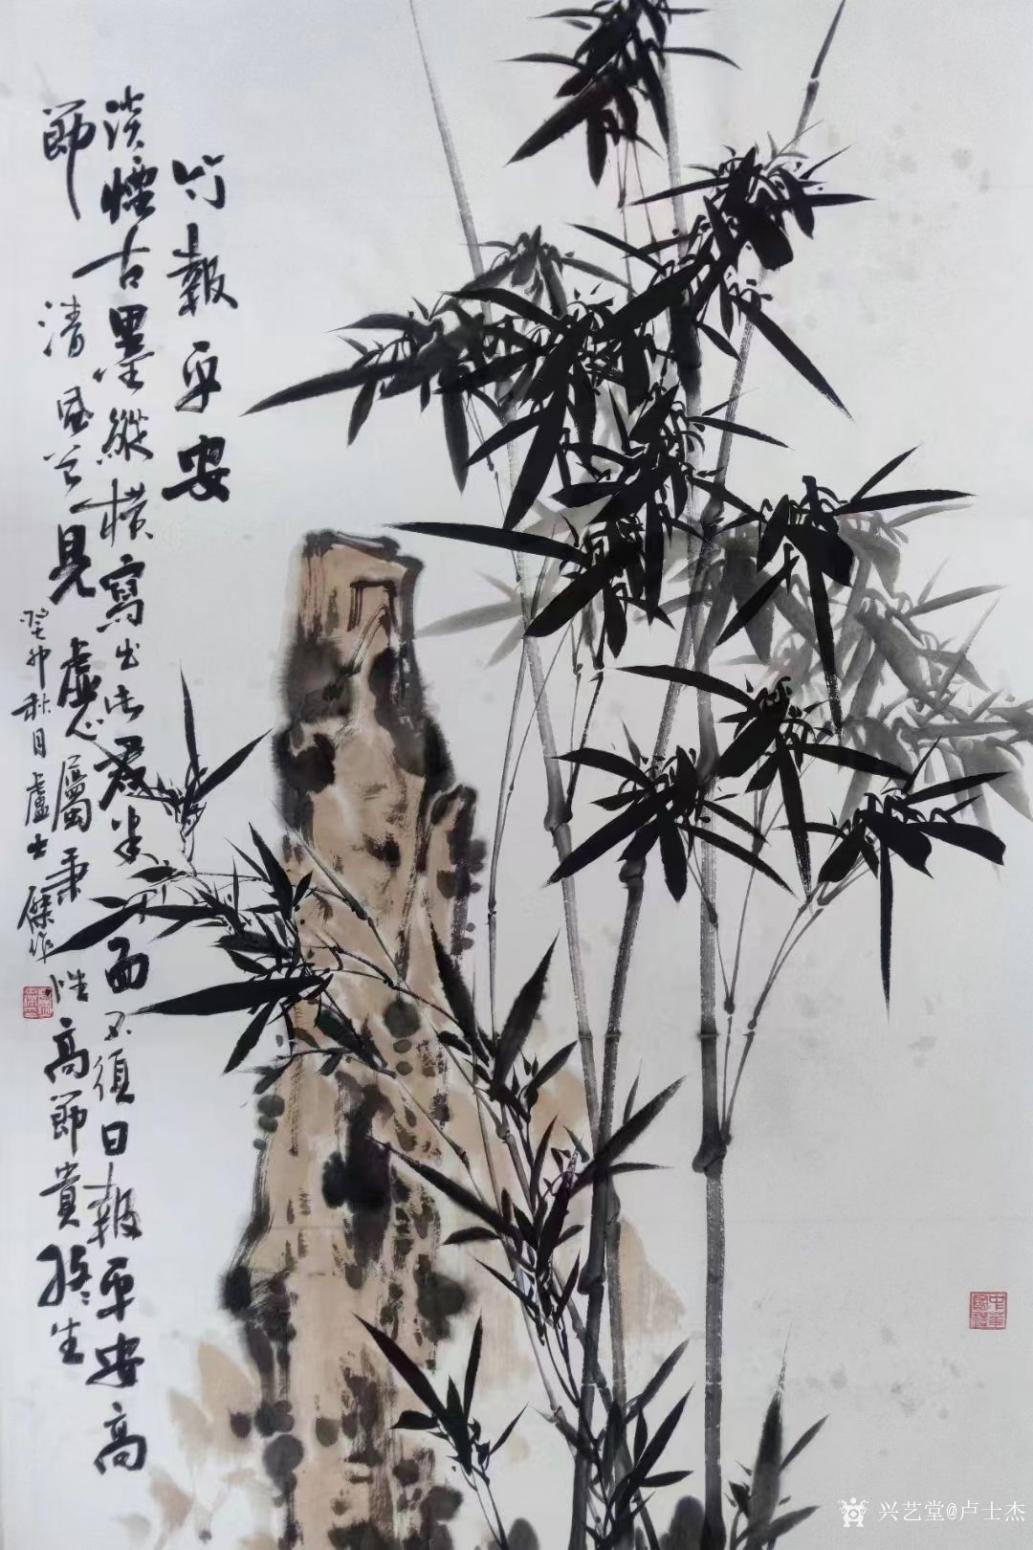 竹報平安
淡煙古墨縱橫寫出此君半面不須日報平安高
節清風曾見虛心屬秉性高節貴生
癸卯秋月盧士傑作
兴艺堂@卢士杰